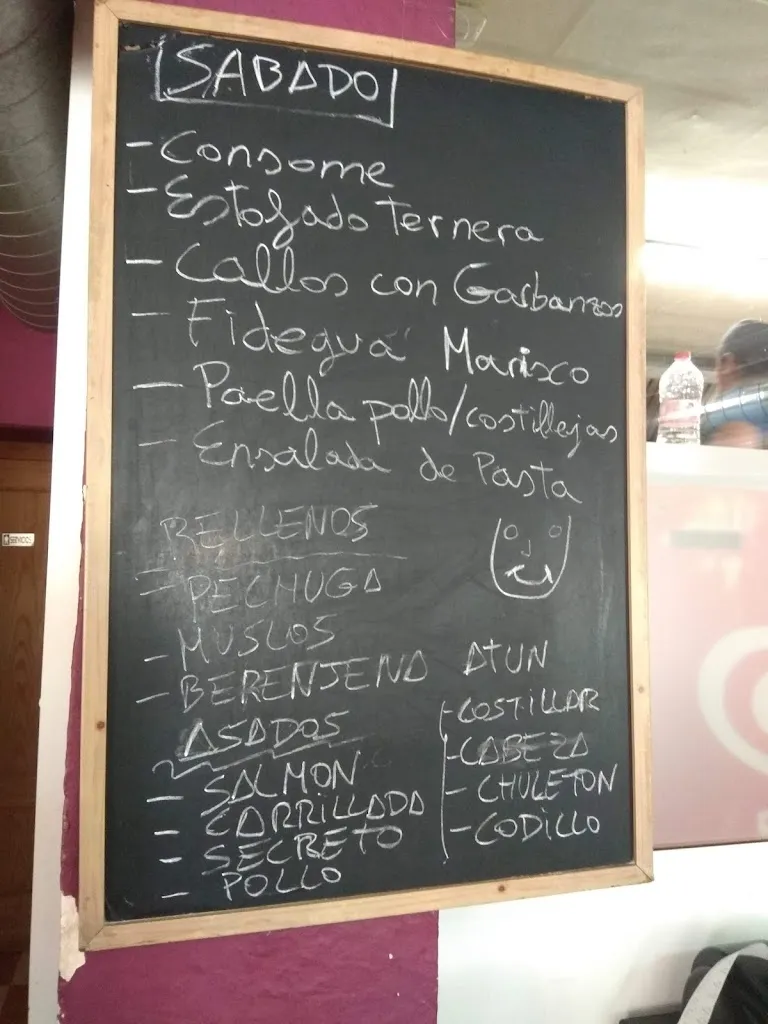 SABADO
- Consome
- Estofado Ternera
- Callos con Garbanzos
- Fidegua Marisco
- Paella pollo/costillejas
- Ensalada de Pasta
RELLENOS
- PECHUGA
- MUSLOS
- BERENJENA ATUN
ASADOS
- SALMON
- CARRILLADA
- SECRETO
- POLLO
- COSTILLAR
- CABEZA
- CHULETON
- CODILLO